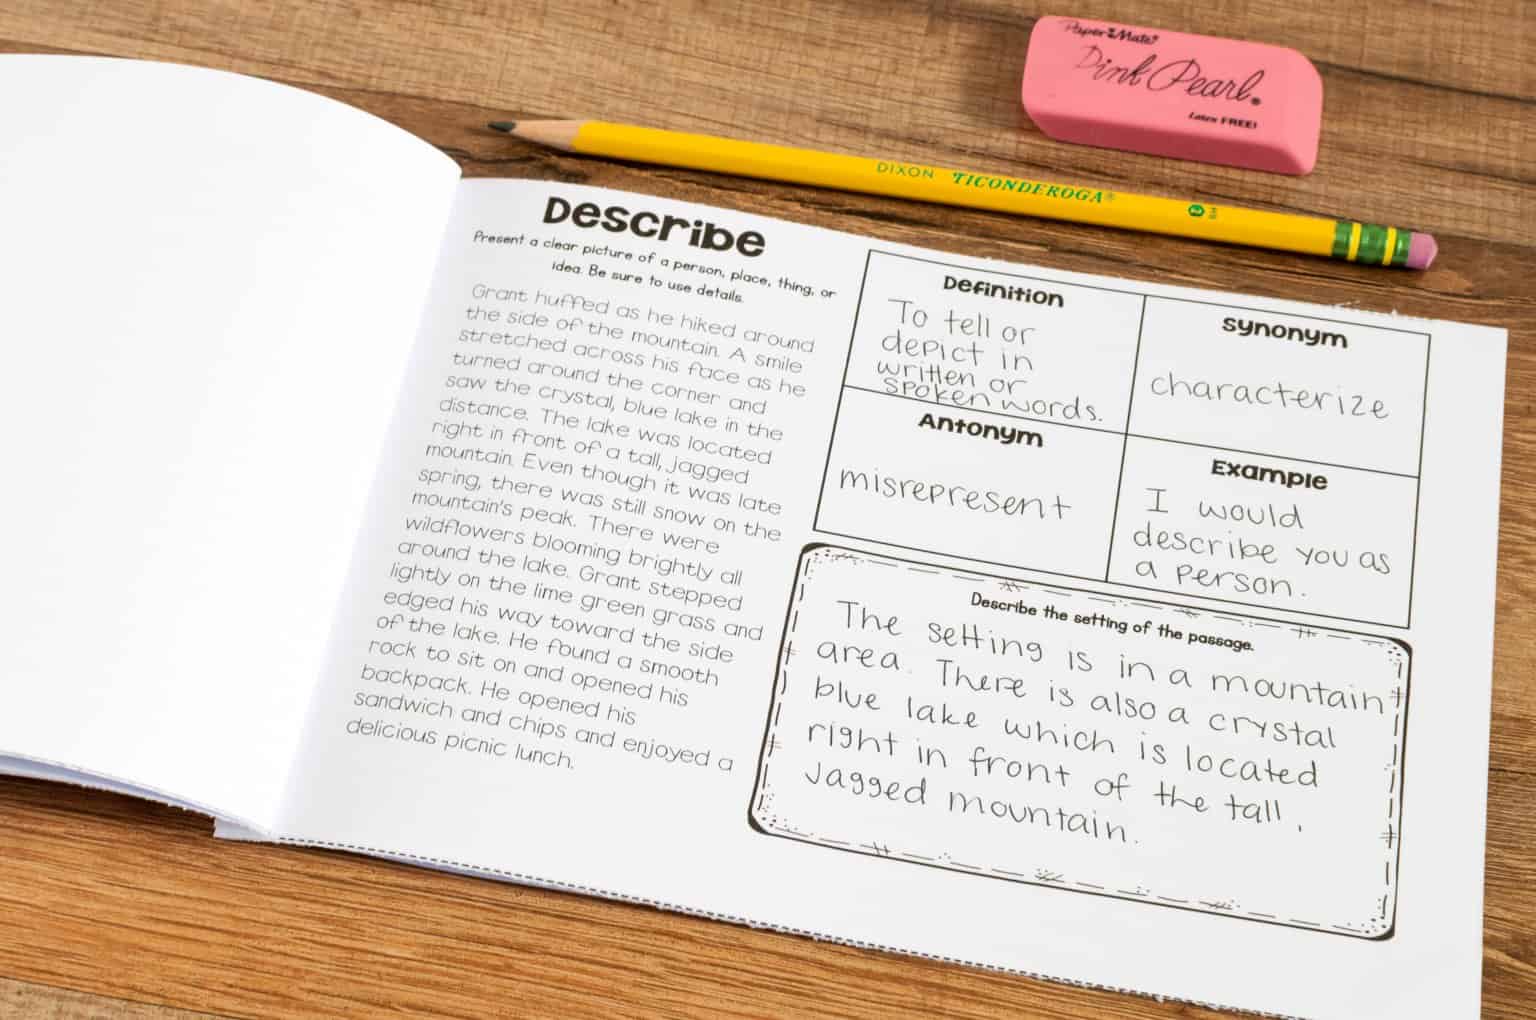 Paper Mate
Pink Pearl®
Latex FREE!
DIXON TICONDEROGA® 2
Describe
Present a clear picture of a person, place, thing, or
idea. Be sure to use details.
Grant huffed as he hiked around
the side of the mountain. A smile
stretched across his face as he
turned around the corner and
saw the crystal, blue lake in the
distance. The lake was located
right in front of a tall, jagged
mountain. Even though it was late
spring, there was still snow on the
mountain's peak. There were
wildflowers blooming brightly all
around the lake. Grant stepped
lightly on the lime green grass and
edged his way toward the side
of the lake. He found a smooth
rock to sit on and opened his
backpack. He opened his
sandwich and chips and enjoyed a
delicious picnic lunch.
Definition
To tell or
depict in
written or
spoken words.
Synonym
characterize
Antonym
misrepresent
Example
I would
describe you as
a person.
Describe the setting of the passage.
The setting is in a mountain
area. There is also a crystal
blue lake which is located
right in front of the tall,
jagged mountain.